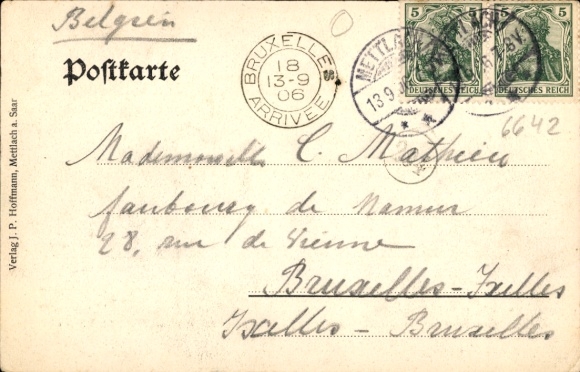 Belgien
Postkarte
BRUXELLES
18
13-9
06
ARRIVÉE
METTLACH
13.9.06
5 5
DEUTSCHES REICH DEUTSCHES REICH
6642
Mademoiselle C. Mathieu
faubourg de Namur
28, rue de Vienne
Bruxelles-Ixelles
Ixelles - Bruxelles
Verlag J. P. Hoffmann, Mettlach a. Saar